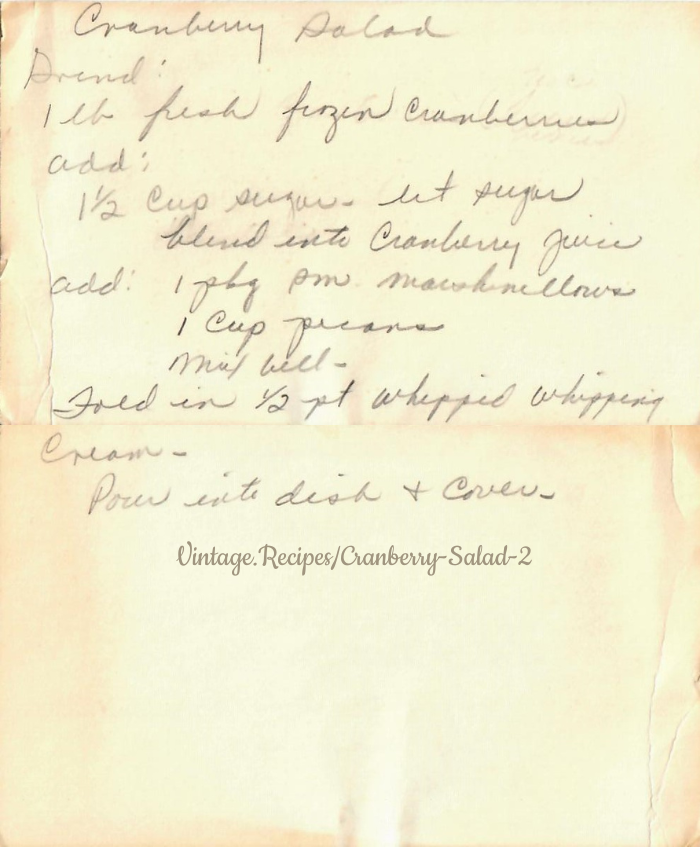 Cranberry Salad
Grind:
1 lb fresh frozen Cranberries
add:
1½ Cup sugar - let sugar
blend into Cranberry juice
add: 1 pkg sm marshmellows
1 Cup pecans
Mix well -
Fold in ½ pt whipped whipping
Cream -
Pour into dish & Cover -
Vintage.Recipes/Cranberry-Salad-2